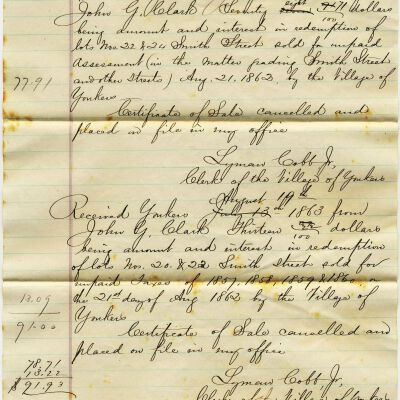 John G. Clark (Seventy eight 71/100 dollars
being amount and interest in redemption of
lots Nos. 22 & 24 Smith Street sold for unpaid
Assessment (in the matter grading Smith Street
and other Streets) Aug. 21. 1862, by the Village of
77.91
Yonkers
Certificate of Sale cancelled and
placed on file in my office
Lyman Cobb Jr.
Clerk of the Village of Yonkers
August 19th
Received Yonkers July 13th 1863 from
John G. Clark Thirteen /100 dollars
being amount and interest in redemption
of lots Nos. 20. & 22 Smith street sold for
unpaid Taxes of 1857, 1858, 1859 & 1860.
the 21st day of Aug 1862 by the Village of
13.09
Yonkers
91.00
Certificate of Sale cancelled and
placed on file in my office
78.71
13.22
$91.93
Lyman Cobb Jr.
Clerk of Village of Yonkers